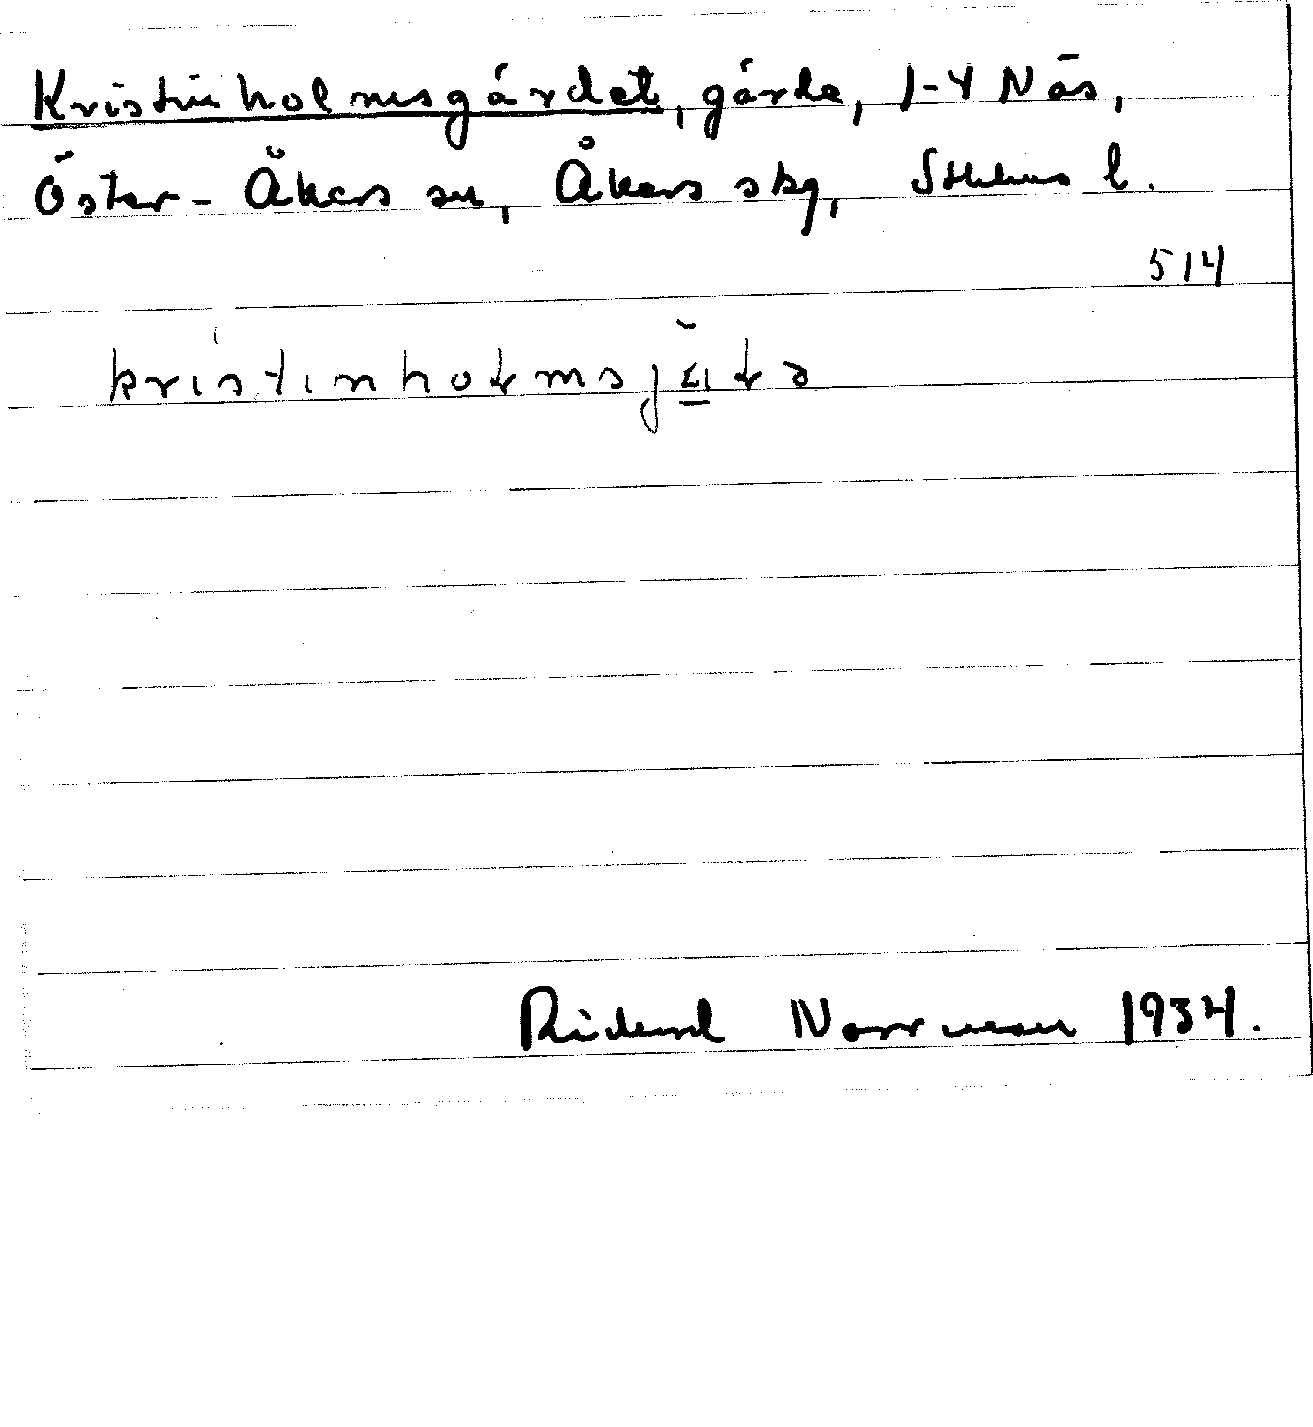 Kristinholmsgärdet, gärde, 1-4 Näs,
Öster-Åkers sn, Åkers skg, Sthlms l.
514
kristinholmsj
Rickard Norrman 1934.